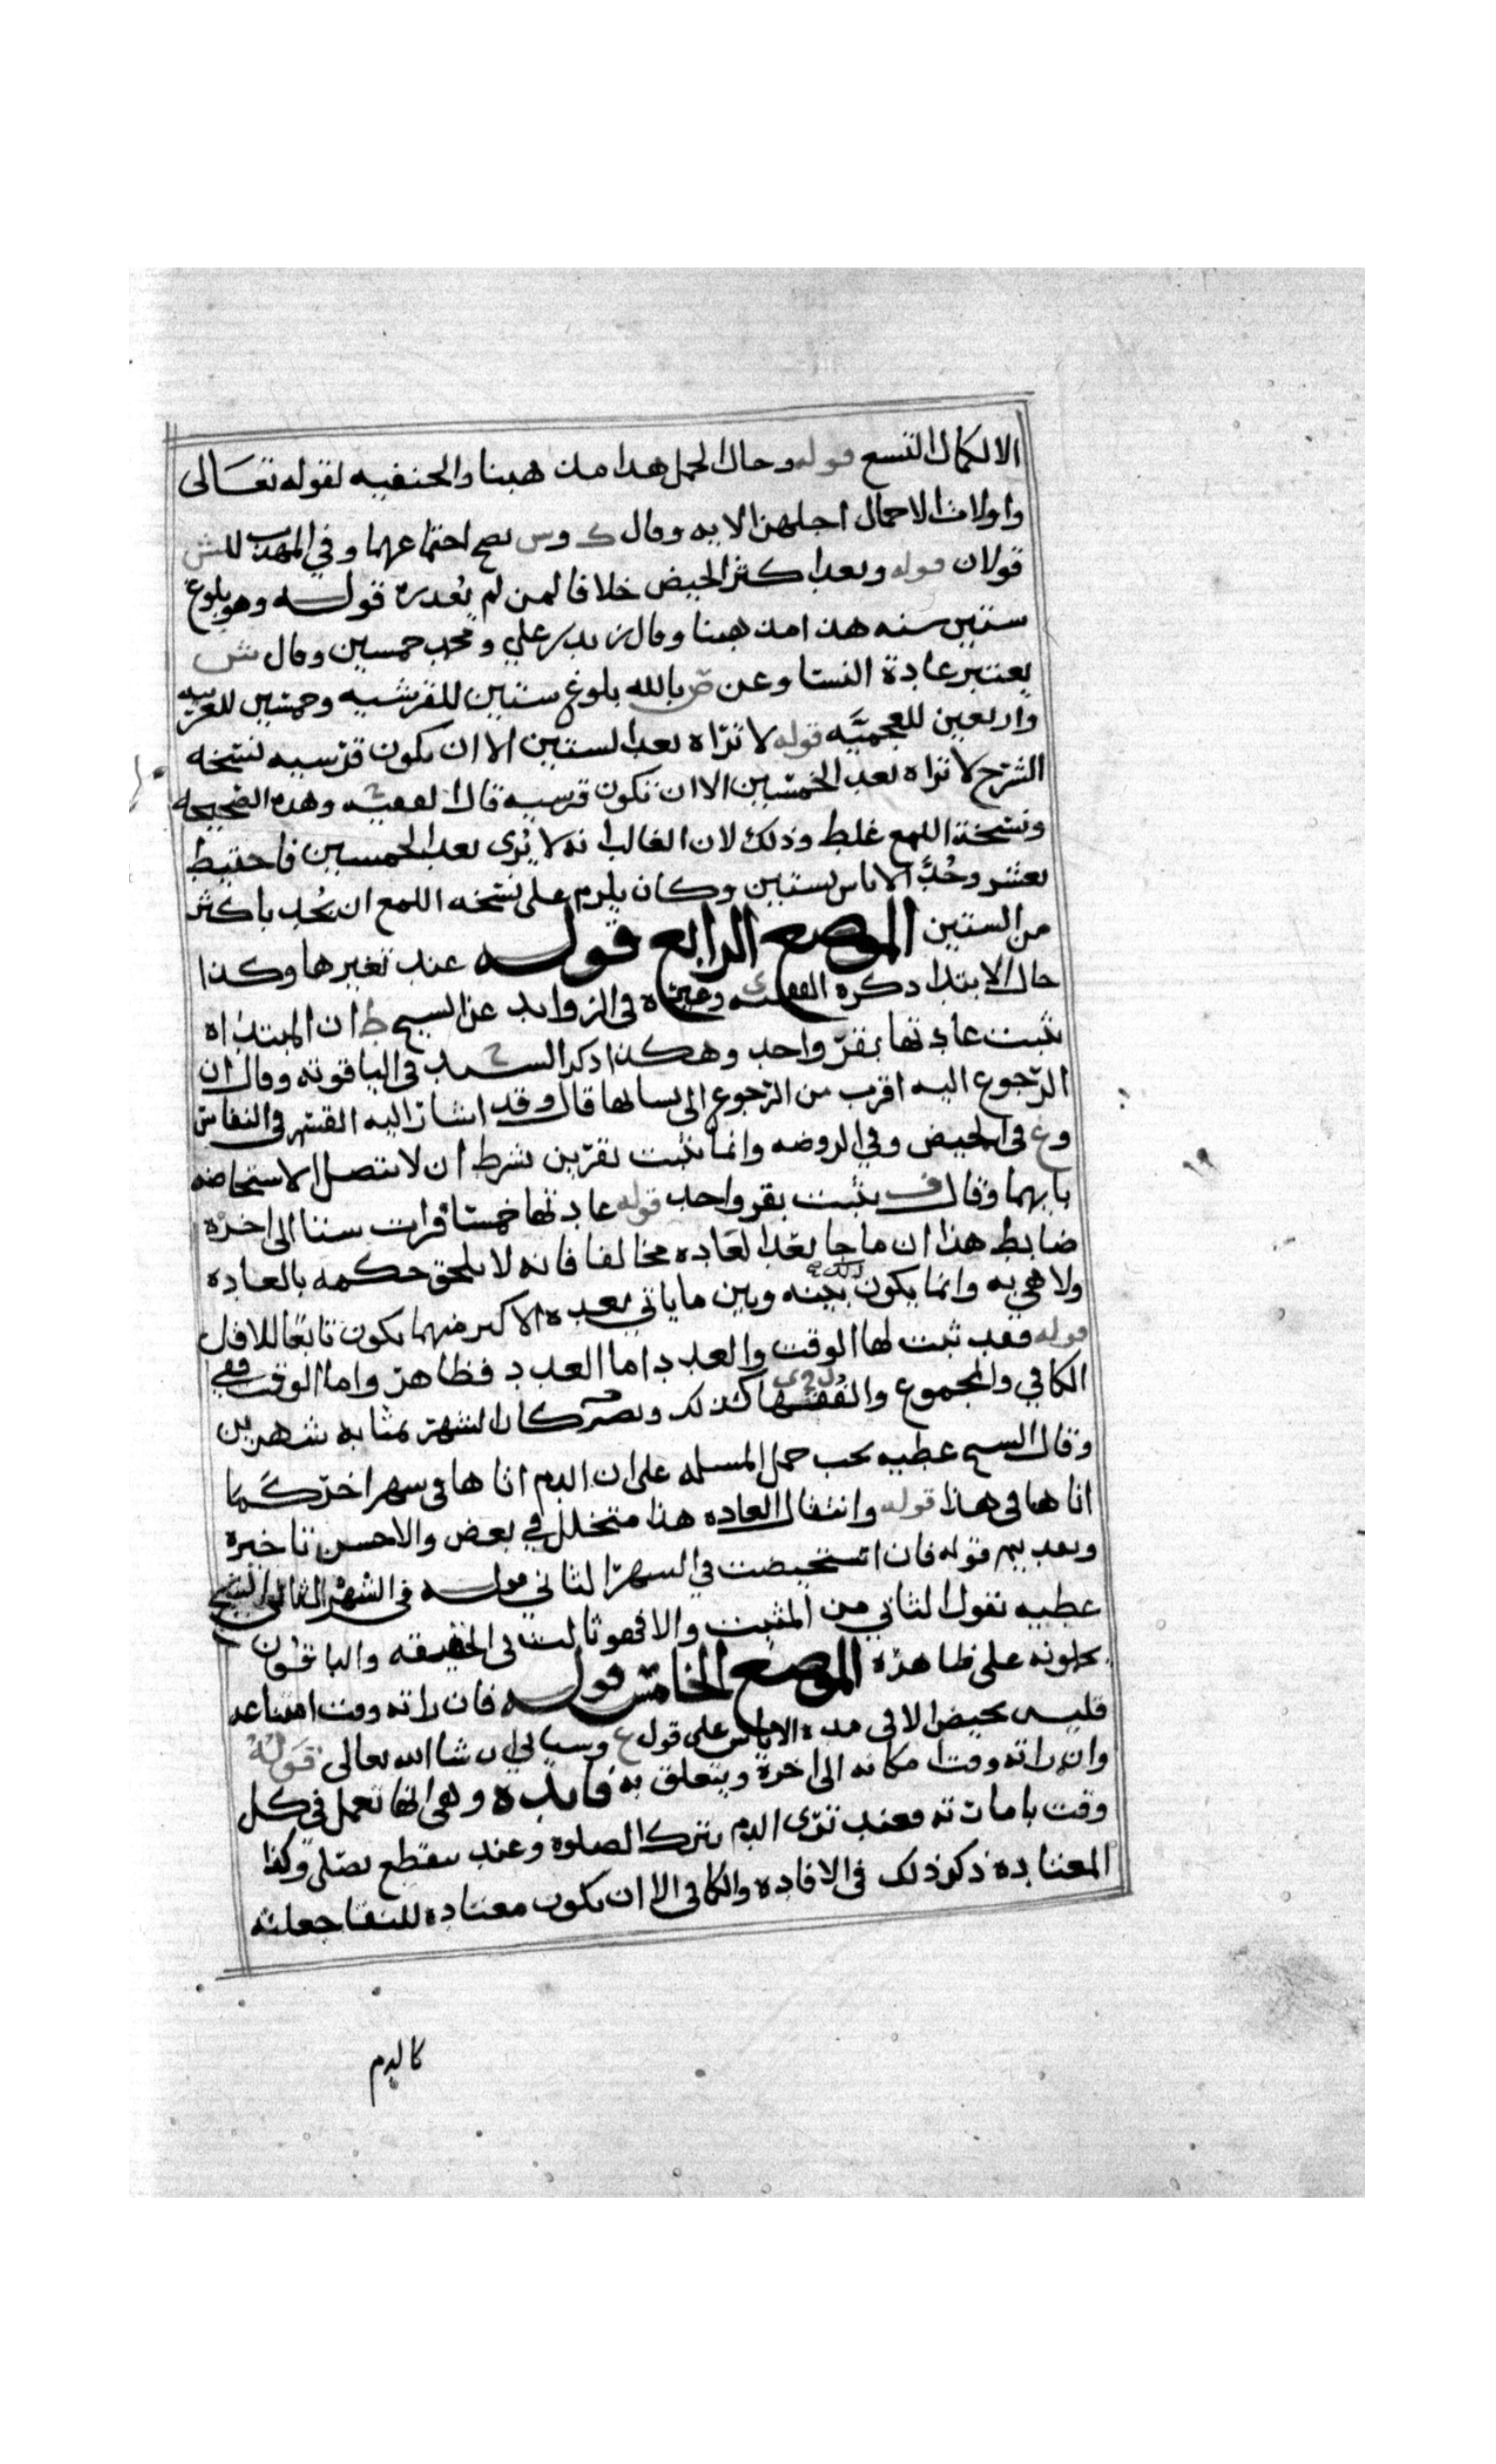 الا لكمال التسع قوله وحال الحمل هدا مذهبنا والحنفيه لقوله تعالى
واولات الاحمال اجلهن الايه وقال ك وس يصح اجتماعهما وفي المهذب للش
قولان قوله وبعد اكثر الحيض خلافا لمن لم يقدره قوله وهو بلوغ
ستين سنه هذا مذهبنا وقال زيد بن علي ومحمد خمسين وقال ش
يعتبر عادة النسا وعن ص بالله بلوغ ستين للقرشيه وخمسين للعربيه
واربعين للعجميه قوله لا تراه بعد الستين الا ان تكون قرشيه نسخه
الشرح لا تراه بعد الخمسين الا ان تكون قرسيه قال الفقيه ح وهذه الصحيحه
ونسخة اللمع غلط وذلك لان الغالب انه لا يرى بعد الخمسين فاحتيط
بعشر وحد الاياس بستين وكان يلزم على نسخه اللمع ان يحد باكثر
من الستين الموضع الرابع قوله عند تغيرها وكذا
حال الابتدا دكره الفقيه ى وغيره في الزوايد عن السيح ط ان المبتداه
تثبت عادتها بقر واحد وهكذا ذكر السيد ح في الياقوته وقال ان
الرجوع اليه اقرب من الرجوع الى نسايها قال وقد اشار اليه القسم في النفاس
وع في الحيض وفي الروضه وانما تثبت بقرين بشرط ان لا تتصل الاستحاضه
بايهما وقال ف يثبت بقر واحد قوله عادتها خمسا فرات ستا الى اخره
ضابط هذا ان ما جا بعد العاده مخالفا فانه لا يلحق حكمه بالعاده
ولا هي به وانما يكون ذلك بينه وبين ما ياتي بعده الاكبر منهما يكون تابعا للاقل
قوله فقد ثبت لها الوقت والعدد اما العدد فظاهر واما الوقت ففي
الكافي والمجموع والفقها ل وى كذلك ونصره كان الشهر بمثابه شهرين
وقال السيح عطيه يحب حمل المسله على ان الدم اتاها في سهر اخر كما
اتاها في هذا قوله وانتقال العاده هذا متخلل في بعض والاحسن تاخيره
وبعد بيم قوله فان استحيضت في السهر الثاني قوله في الشهر الثالث الشيح
عطيه نقول الثاني من المثبت والا فهو ثالث في الحقيقه والباقون
يحلونه على ظاهره الموضع الخامس قوله فان راته وقت امتناعه
فليس بحيض الا في مده الاياس على قول ع وسياتي ان شا الله تعالى قوله
وان راته وقت امكانه الى اخره ويتعلق به فايده وهي انها تعمل في كل
وقت باماراته فعند ترى الدم تترك الصلوة وعند ينقطع تصلي وكذا
المعتاده ذكر ذلك في الافاده والكافي الا ان تكون معتاده للنقا جعلته
كالدم